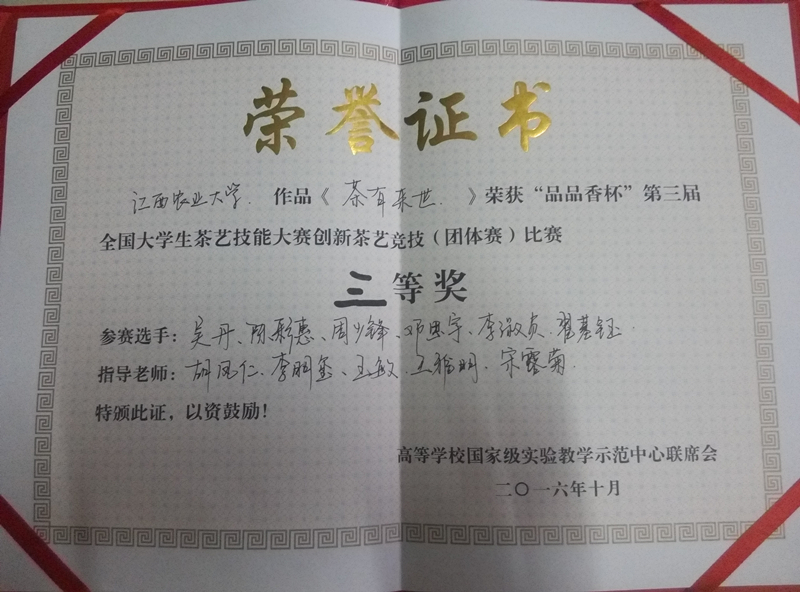 荣誉证书
江西农业大学 作品《茶有来世》荣获“品品香杯”第三届
全国大学生茶艺技能大赛创新茶艺竞技（团体赛）比赛
三等奖
参赛选手：吴丹、陈彩惠、周少锋、邓思宇、李淑贞、翟基钰
指导老师：胡凤仁、李明玺、王敏、王雅明、宋雪菊
特颁此证，以资鼓励！
高等学校国家级实验教学示范中心联席会
二〇一六年十月